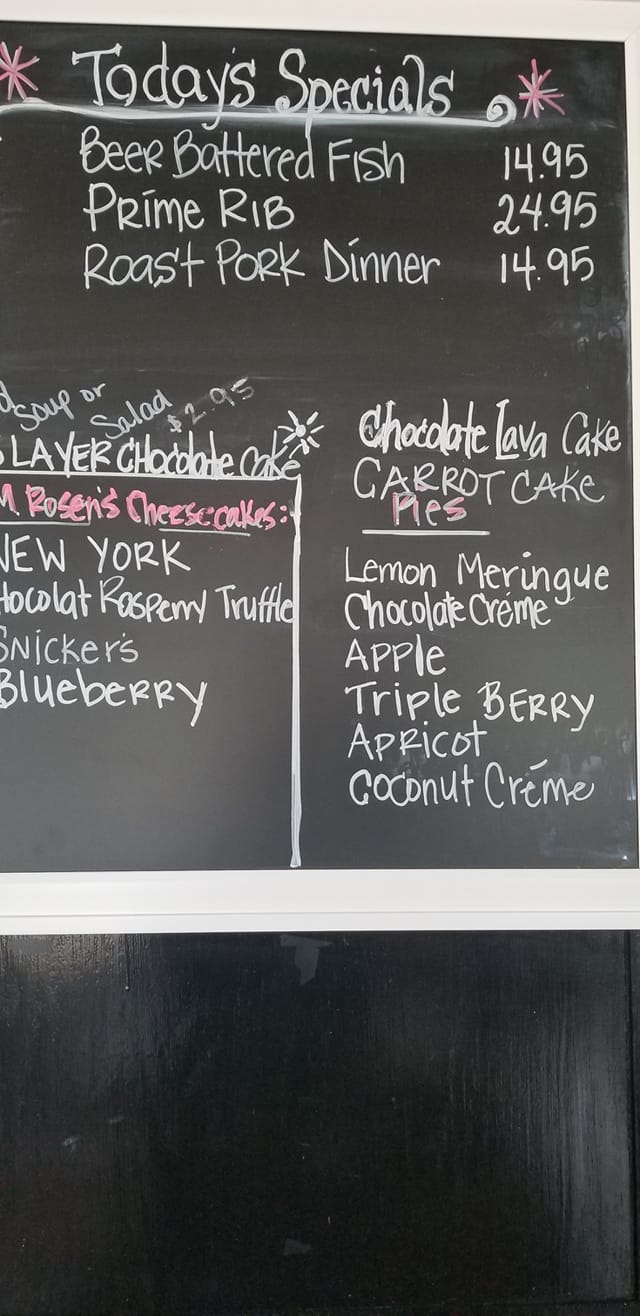 Today's Specials
Beer Battered Fish 14.95
Prime Rib 24.95
Roast Pork Dinner 14.95
Soup or
Salad $2.95
LAYER CHocolate Cake
M Rosen's Cheesecakes:
NEW YORK
Hocolat Rasperry Truffle
Snicker's
BlueberRy
Chocolate Lava Cake
CARROT CAKe
Pies
Lemon Meringue
Chocolate Créme
APPle
Triple BERRy
APRicot
Coconut Créme